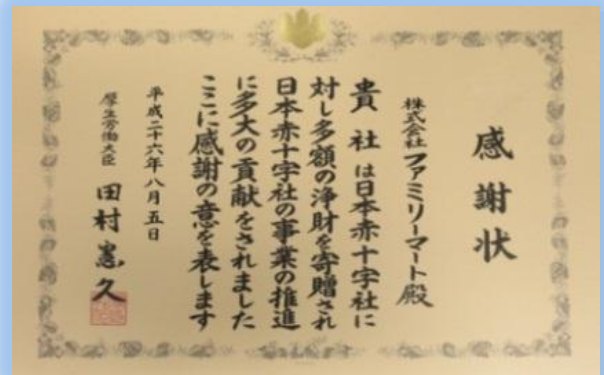 感謝状
株式会社ファミリーマート殿
貴社は日本赤十字社に
対し多額の浄財を寄贈され
日本赤十字社の事業の推進
に多大の貢献をされました
ここに感謝の意を表します
平成二十六年八月五日
厚生労働大臣 田村憲久